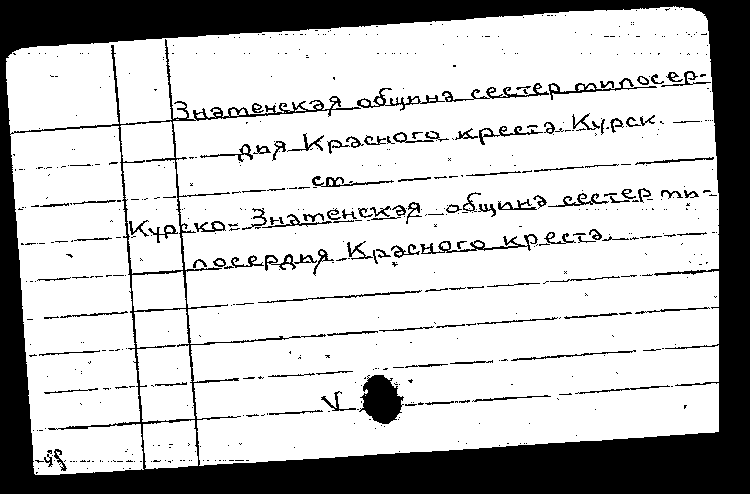 Знаменская община сестер милосер-
дия Красного креста. Курск.
см.
Курско-Знаменская община сестер ми-
лосердия Красного креста.
V